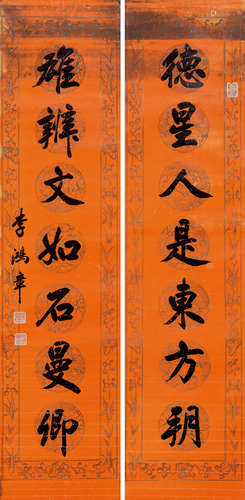 德星人是東方朔
雄辨文如石曼卿
李鴻章